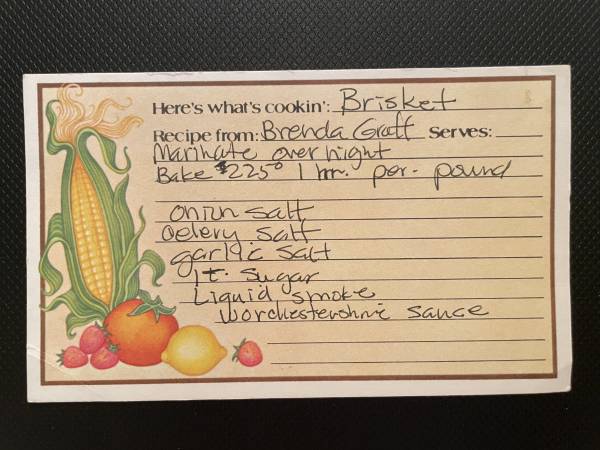 Here's what's cookin': Brisket
Recipe from: Brenda Graff Serves:
Marinate over night
Bake 225° 1 hr. per. pound
Onion salt
Celery salt
garlic salt
1 t. sugar
Liquid smoke
Worchestershire sauce